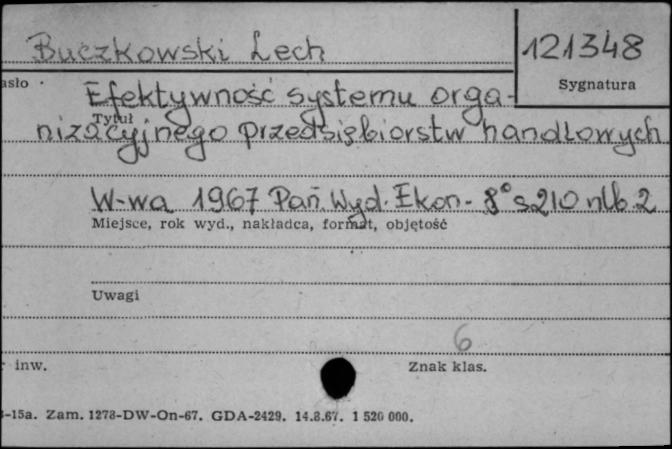 Buczkowski Lech
121348
asło
Sygnatura
Efektywność systemu orga-
Tytuł
nizacyjnego przedsiębiorstw handlowych
W-wa 1967 Pań. Wyd. Ekon. 8° s. 210 nlb. 2
Miejsce, rok wyd., nakładca, format, objętość
Uwagi
6
inw.
Znak klas.
-15a. Zam. 1278-DW-On-67. GDA-2429. 14.8.67. 1 520 000.